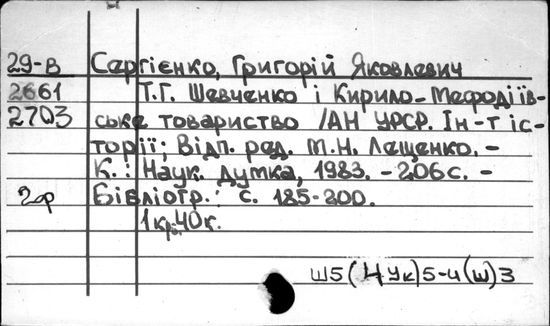 29-В Сергієнко, Григорій Яковлевич
2661 Т.Г. Шевченко і Кирило-Мефодіїв-
2703 ське товариство /АН УРСР. Ін-т іс-
торії; Відп. ред. М.Н. Лещенко. -
К.: Наук. думка, 1983. - 206 с. -
2ор Бібліогр.: с. 185-200.
1кр. 40к.
Ш5(4Ук)5-4(Ш)3